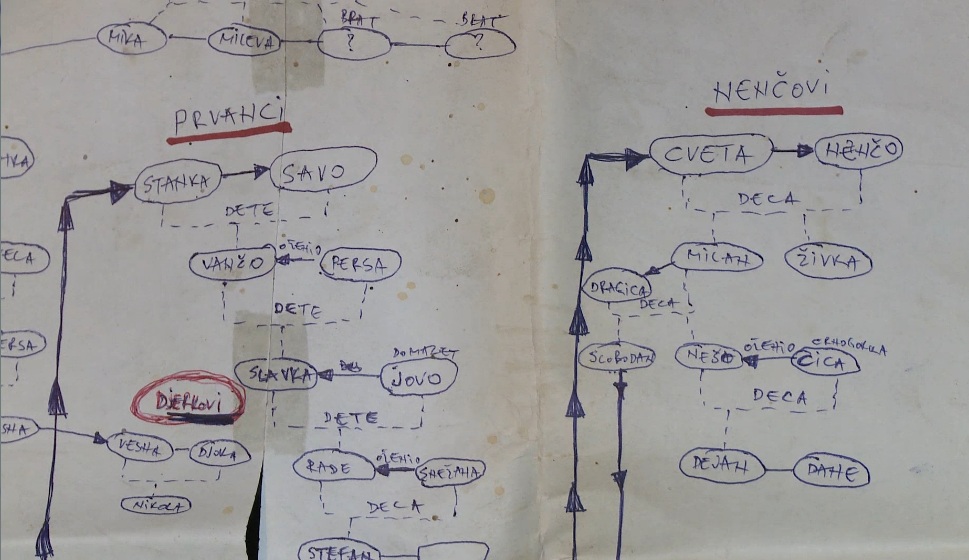 BRAT
BRAT
MIKA
MILEVA
?
?
PRVANCI
STANKA
SAVO
DETE
VANČO
OŽENIO
PERSA
DETE
SLAVKA
DOMAZET
JOVO
DJERKOVI
DETE
VESNA
DJOKA
NIKOLA
RADE
OŽENIO
SNEŽANA
DECA
STEFAN
NENČOVI
CVETA
NENČO
DECA
MILAN
ŽIVKA
DRAGICA
DECA
SLOBODAN
NEŠO
OŽENIO
CRNOGORKA
CICA
DECA
DEJAN
DANE